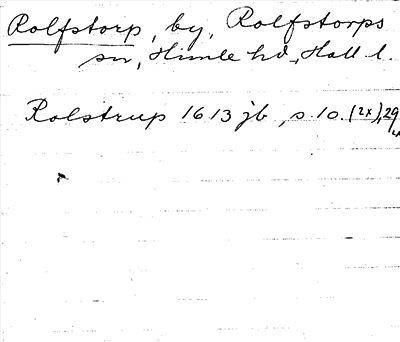 Rolfstorp, by, Rolfstorps
sn, Himle hd, Hall l.
Rolstrup 1613 jb, s. 10. (2x), 29